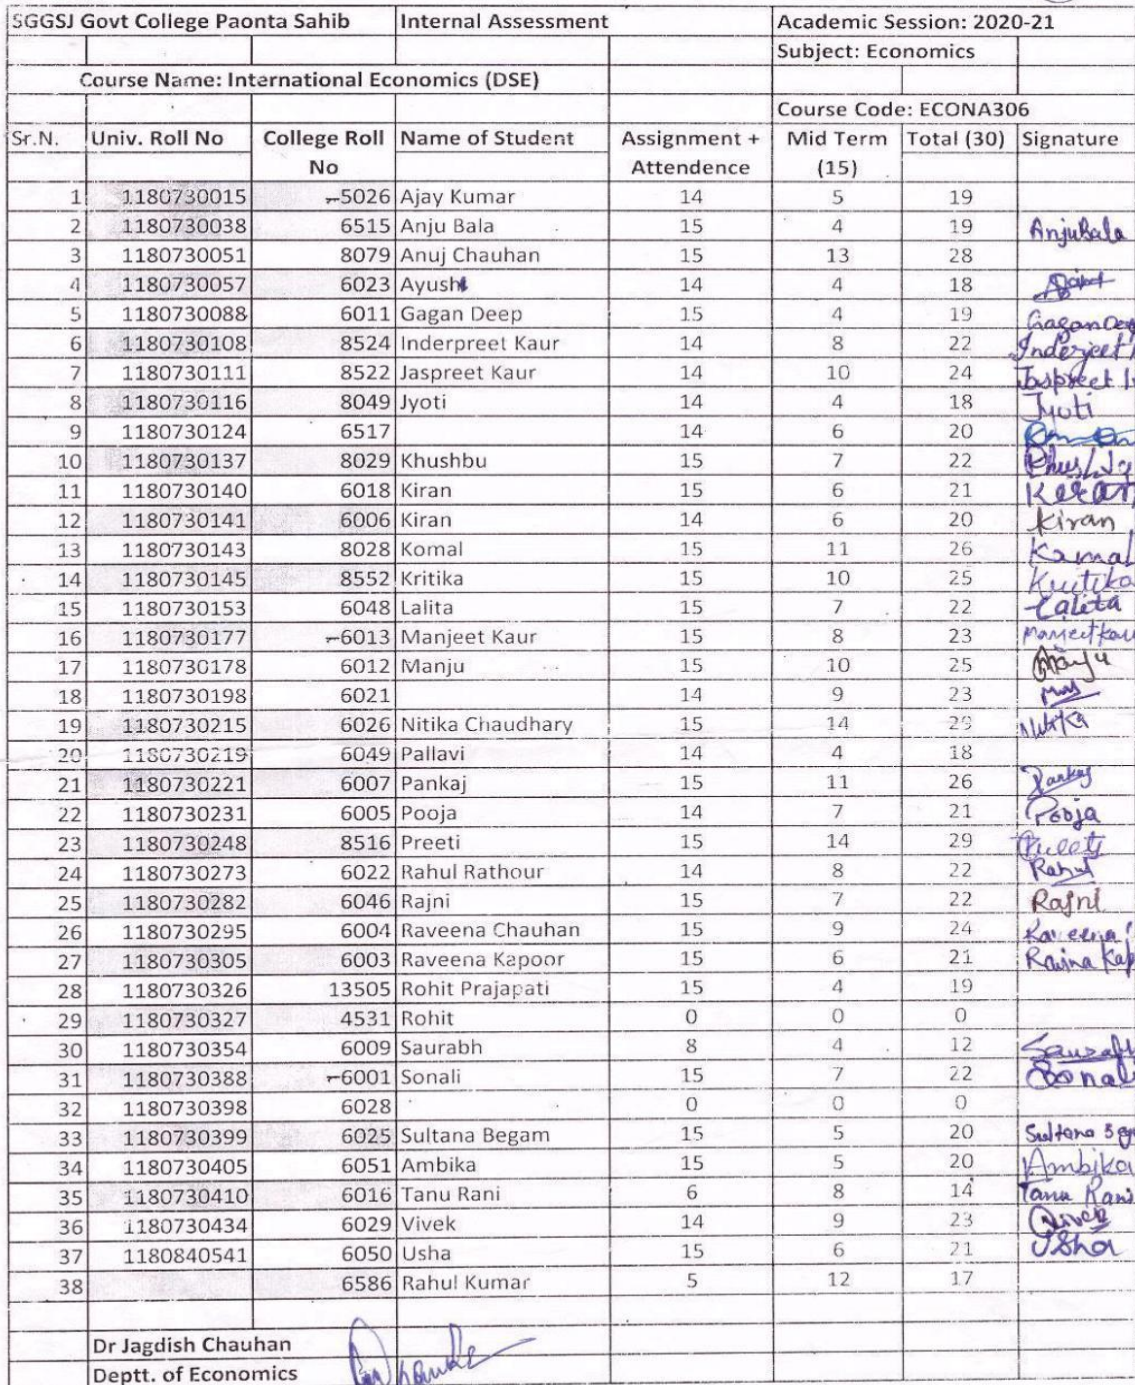 SGGSJ Govt College Paonta Sahib Internal Assessment Academic Session: 2020-21
Subject: Economics
Course Name: International Economics (DSE)
Course Code: ECONA306
Sr.N. Univ. Roll No College Roll No Name of Student Assignment + Attendence Mid Term (15) Total (30) Signature
1 1180730015 5026 Ajay Kumar 14 5 19
2 1180730038 6515 Anju Bala 15 4 19 AnjuBala
3 1180730051 8079 Anuj Chauhan 15 13 28
4 1180730057 6023 Ayush 14 4 18
5 1180730088 6011 Gagan Deep 15 4 19 Gagan Deep
6 1180730108 8524 Inderpreet Kaur 14 8 22 Inderjeet
7 1180730111 8522 Jaspreet Kaur 14 10 24 Jaspreet
8 1180730116 8049 Jyoti 14 4 18 Jyoti
9 1180730124 6517 14 6 20
10 1180730137 8029 Khushbu 15 7 22
11 1180730140 6018 Kiran 15 6 21 Keran
12 1180730141 6006 Kiran 14 6 20 Kiran
13 1180730143 8028 Komal 15 11 26 Komal
14 1180730145 8552 Kritika 15 10 25 Kritika
15 1180730153 6048 Lalita 15 7 22 Lalita
16 1180730177 6013 Manjeet Kaur 15 8 23 Manjeet kaur
17 1180730178 6012 Manju 15 10 25 Manju
18 1180730198 6021 14 9 23
19 1180730215 6026 Nitika Chaudhary 15 14 29 Nitika
20 1180730219 6049 Pallavi 14 4 18
21 1180730221 6007 Pankaj 15 11 26 Pankaj
22 1180730231 6005 Pooja 14 7 21 Pooja
23 1180730248 8516 Preeti 15 14 29 Preeti
24 1180730273 6022 Rahul Rathour 14 8 22 Rahul
25 1180730282 6046 Rajni 15 7 22 Rajni
26 1180730295 6004 Raveena Chauhan 15 9 24 Raveena
27 1180730305 6003 Raveena Kapoor 15 6 21 Ravina Kap
28 1180730326 13505 Rohit Prajapati 15 4 19
29 1180730327 4531 Rohit 0 0 0
30 1180730354 6009 Saurabh 8 4 12 Saurabh
31 1180730388 6001 Sonali 15 7 22 Sonali
32 1180730398 6028 0 0 0
33 1180730399 6025 Sultana Begam 15 5 20 Sultana Beg
34 1180730405 6051 Ambika 15 5 20 Ambika
35 1180730410 6016 Tanu Rani 6 8 14 Tanu Rani
36 1180730434 6029 Vivek 14 9 23 Vivek
37 1180840541 6050 Usha 15 6 21 Usha
38 6586 Rahul Kumar 5 12 17
Dr Jagdish Chauhan
Deptt. of Economics